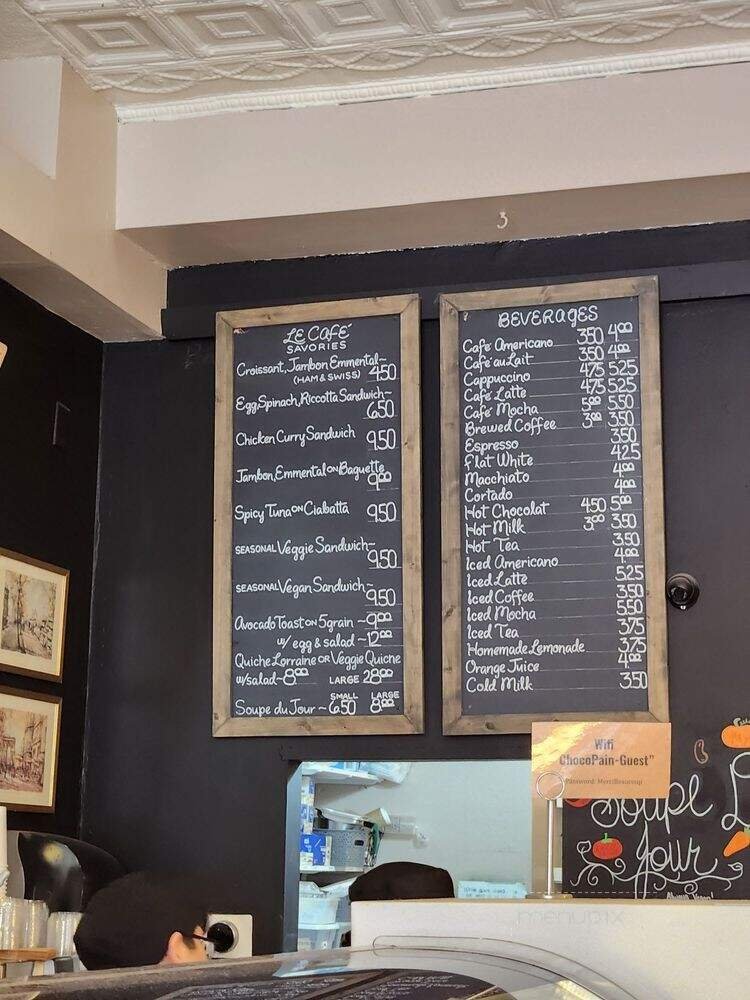 3
LE CAFÉ
SAVORIES
Croissant, Jambon Emmental~
(HAM & SWISS) 4.50
Egg, Spinach, Riccotta Sandwich~
6.50
Chicken Curry Sandwich 9.50
Jambon, Emmental ON Baguette
9.00
Spicy Tuna ON Ciabatta 9.50
SEASONAL Veggie Sandwich~
9.50
SEASONAL Vegan Sandwich~
9.50
Avocado Toast ON 5 grain ~ 9.00
w/ egg & salad ~ 12.00
Quiche Lorraine OR Veggie Quiche
w/salad ~ 8.00 LARGE 28.00
SMALL LARGE
Soupe du Jour ~ 6.50 8.00
BEVERAGES
Café Americano 3.50 4.00
Café au Lait 3.50 4.00
Cappuccino 4.75 5.25
Café Latte 4.75 5.25
Café Mocha 5.00 5.50
Brewed Coffee 3.00 3.50
Espresso 3.50
Flat White 4.25
Macchiato 4.00
Cortado 4.00
Hot Chocolat 4.50 5.00
Hot Milk 3.00 3.50
Hot Tea 3.50
Iced Americano 4.00
Iced Latte 5.25
Iced Coffee 3.50
Iced Mocha 5.50
Iced Tea 3.75
Homemade Lemonade 3.75
Orange Juice 4.00
Cold Milk 3.50
Wifi
ChocoPain-Guest"
Password: MerciBeaucoup
Soupe
Jour
Always Vegan!
menupix